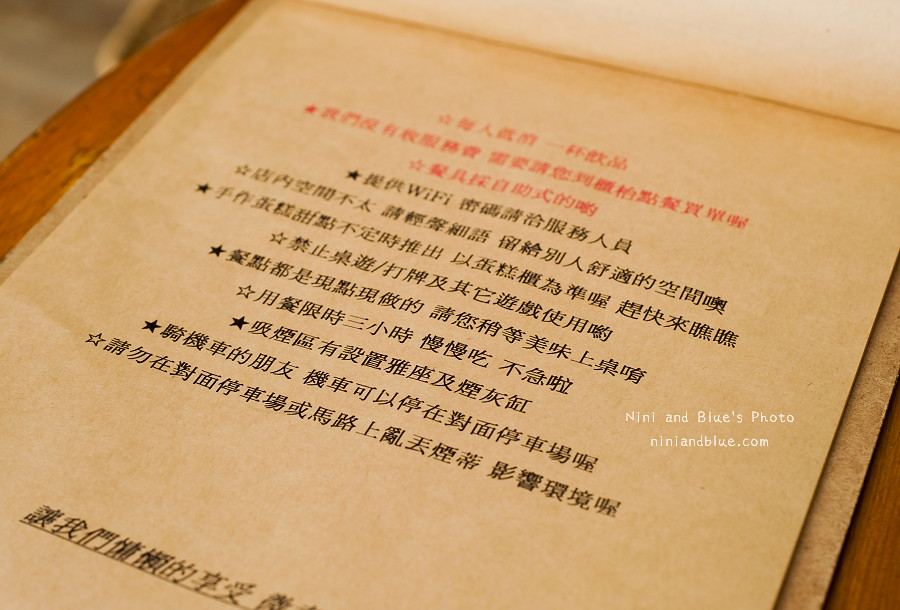 ☆每人低消 一杯飲品
★我們沒有收服務費 需要請您到櫃枱點餐買單喔
☆餐具採自助式的喲
★提供WiFi 密碼請洽服務人員
☆店內空間不太 請輕聲細語 留給別人舒適的空間噢
★手作蛋糕甜點不定時推出 以蛋糕櫃為準喔 趕快來瞧瞧
☆禁止桌遊/打牌及其它遊戲使用喲
★餐點都是現點現做的 請您稍等美味上桌唷
☆用餐限時三小時 慢慢吃 不急啦
★吸煙區有設置雅座及煙灰缸
★騎機車的朋友 機車可以停在對面停車場喔
☆請勿在對面停車場或馬路上亂丟煙蒂 影響環境喔
讓我們慵懶的享受
Nini and Blue's Photo
niniandblue.com